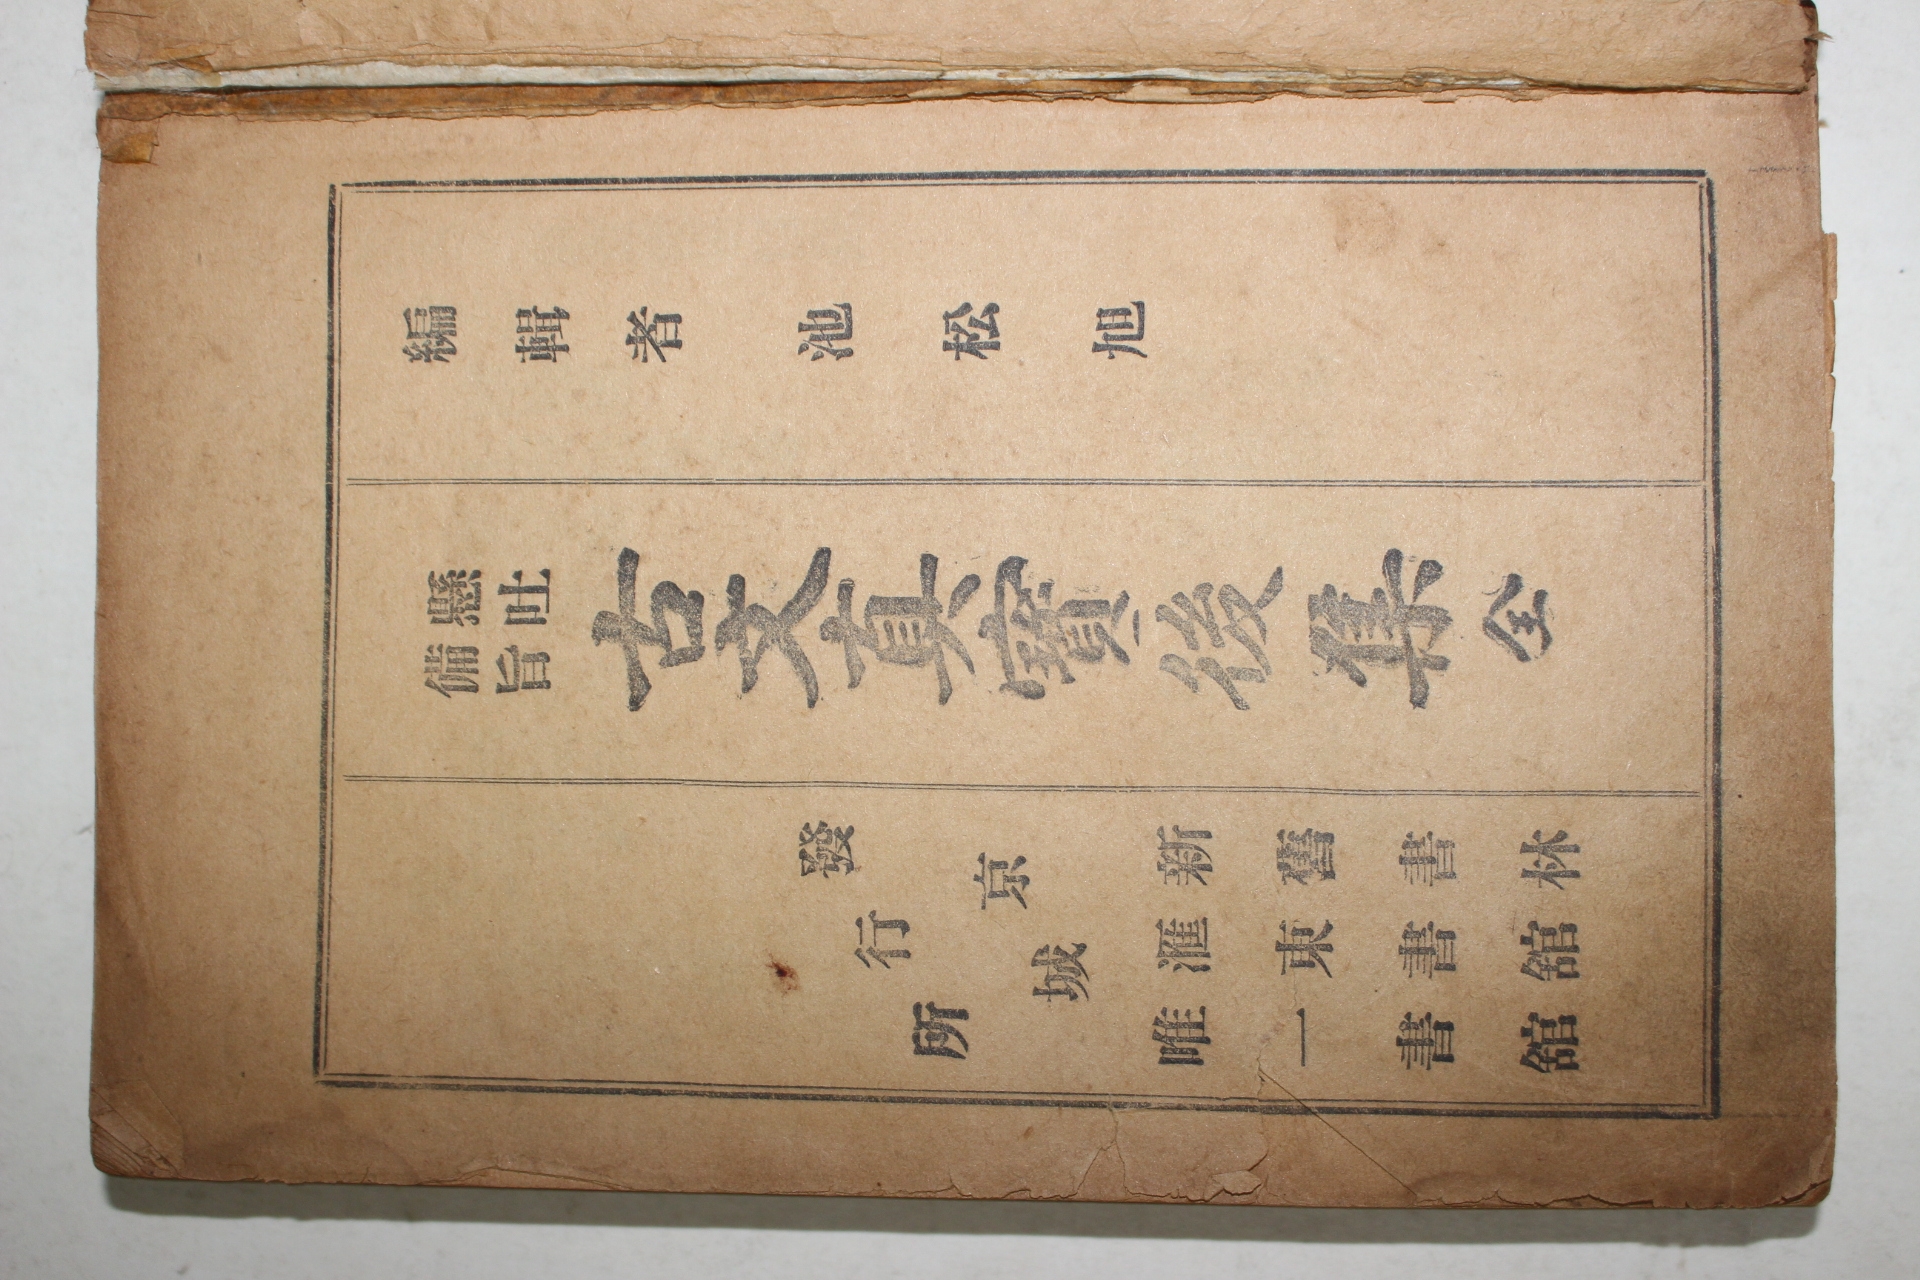 編輯者 池松旭
懸吐
備旨
古文眞寶後集 全
發行所
京城
新舊書林
滙東書舘
唯一書舘